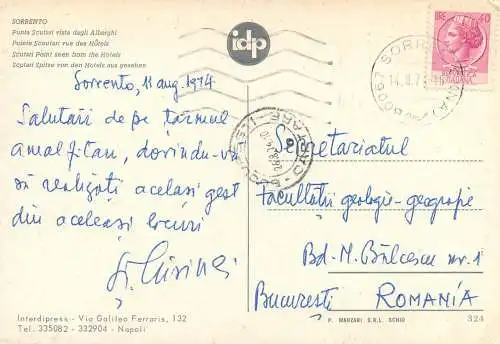 SORRENTO
Punta Scutari vista dagli Alberghi
Pointe Scutari vue des Hôtels
Scutari Point seen from the Hotels
Scutari Spitze von den Hotels aus gesehen
idp
LIRE 40
Sorrento, 11 aug. 1974
Salutări de pe țărmul
amalfitan, dorindu-vă
să realizați același gest
din aceleași locuri
Secretariatul
Facultății geologie-geografie
Bd. N. Bălcescu nr. 1
București ROMANIA
Interdipress - Via Galileo Ferraris, 132
Tel. 335082 - 332904 - Napoli
P. MARZARI S.R.L. SCHIO
324